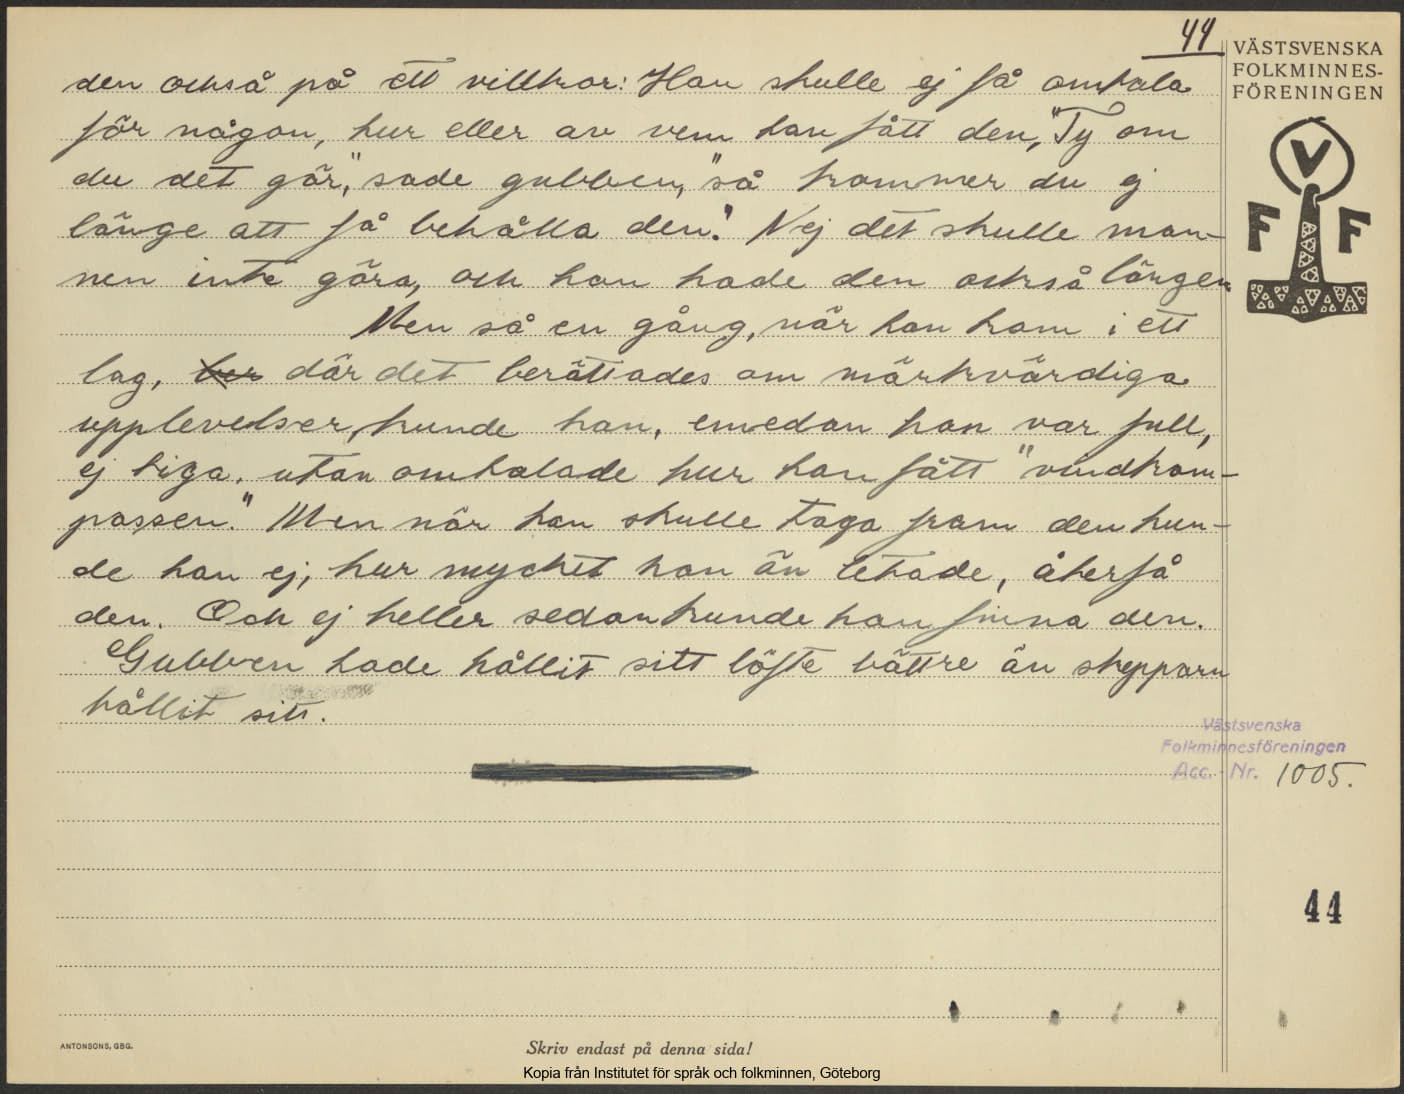 44
VÄSTSVENSKA
FOLKMINNES-
FÖRENINGEN
V
F F
den också på ett villkor: Han skulle ej få omtala
för någon, hur eller av vem han fått den, "Ty om
du det gör," sade gubben, "så kommer du ej
länge att få behålla den." Nej det skulle man-
nen inte göra, och han hade den också längen
Men så en gång, när han kom i ett
lag, ber där det berättades om märkvärdiga
upplevelser, kunde han, emedan han var full,
ej tiga, utan omtalade hur han fått "vindkom-
passen." Men när han skulle taga fram den kun-
de han ej, hur mycket han än letade, återfå
den. Och ej heller sedan kunde han finna den.
Gubben hade hållit sitt löfte bättre än skepparn
hållit sitt.
Västsvenska
Folkminnesföreningen
Acc. - Nr. 1005.
44
ANTONSONS, GBG.
Skriv endast på denna sida!
Kopia från Institutet för språk och folkminnen, Göteborg